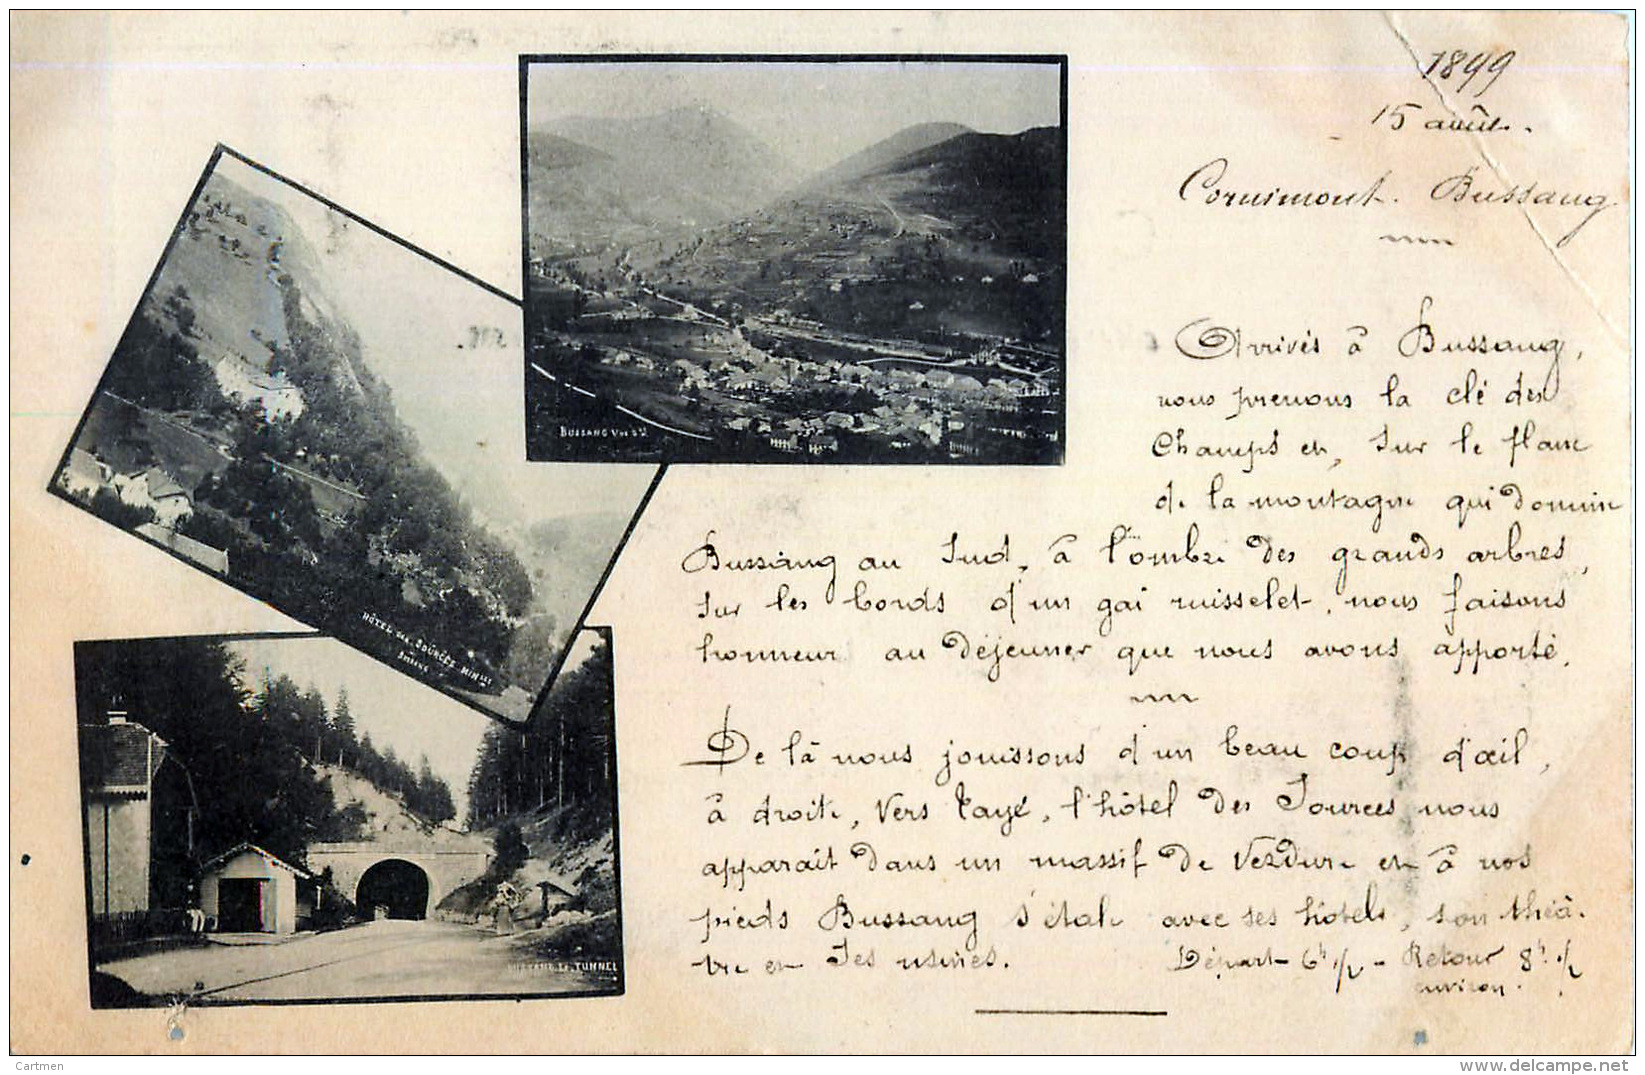 1899
15 août.
Cornimont. Bussang
Arrivés à Bussang,
nous prenons la clé des
Champs et, sur le flanc
de la montagne qui domine
Bussang au Sud, à l'ombre des grands arbres,
sur les bords d'un gai ruisselet, nous faisons
honneur au déjeuner que nous avons apporté.
De là nous jouissons d'un beau coup d'œil,
à droite, vers Tayé, l'hôtel des Sources nous
apparait dans un massif de verdure et à nos
pieds Bussang s'étale avec ses hôtels, son théâ-
tre et ses usines.
Départ 6h 1/2 - Retour 8h 1/2
environ.
BUSSANG VUE
HÔTEL DES SOURCES MINles
BUSSANG
BUSSANG LE TUNNEL
Cartmen
www.delcampe.net